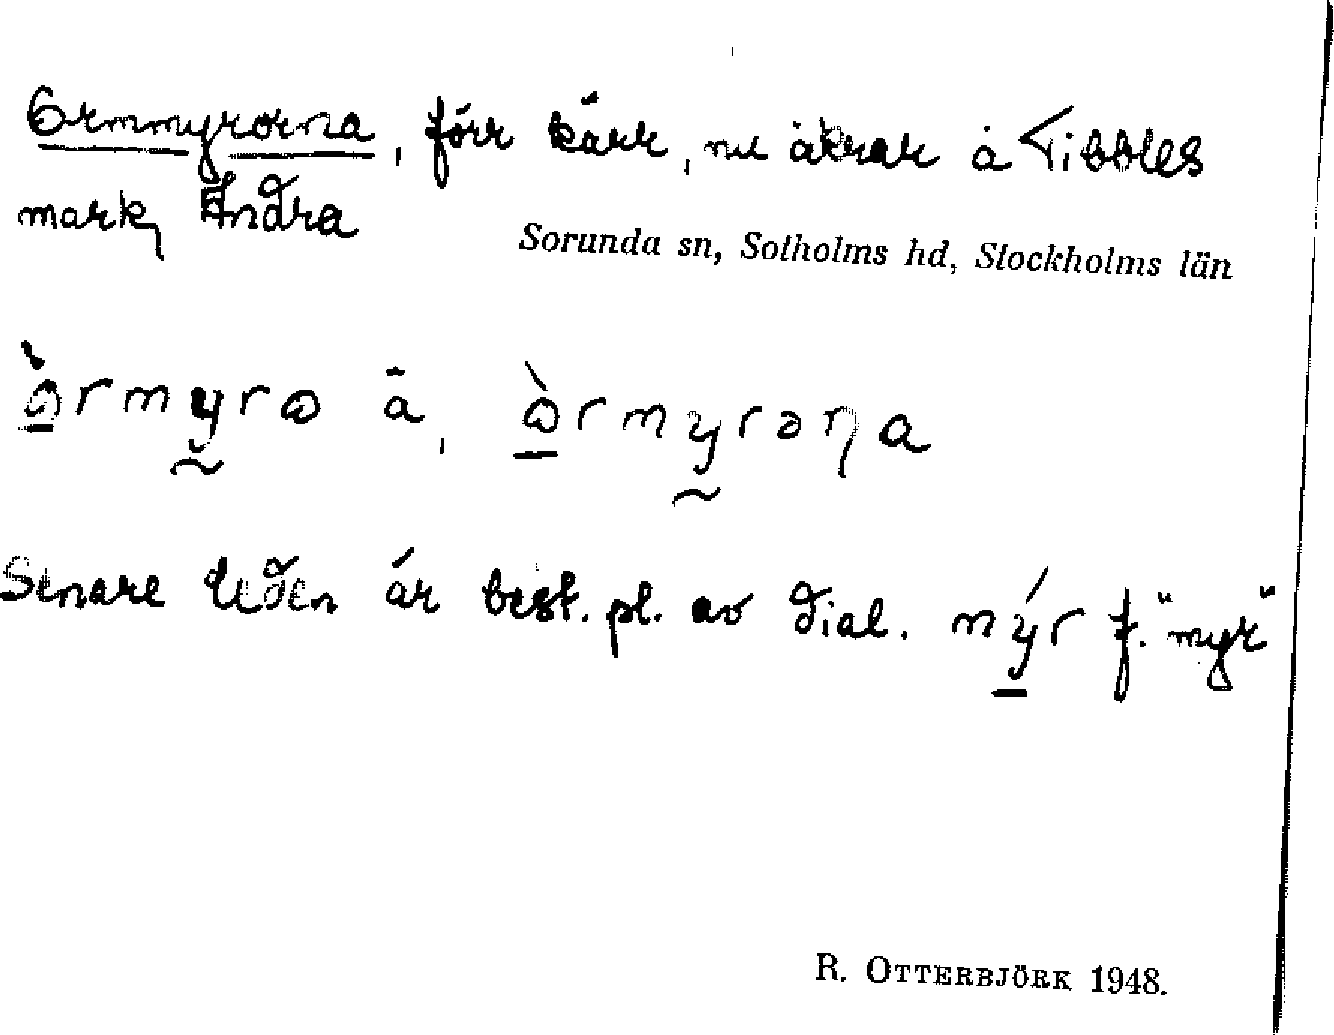 Ormmyrorna, förr kärr, nu åkrar å Tibbles
mark, Ändra
Sorunda sn, Sotholms hd, Stockholms län
ꞷ̀rmyrꞷ å, ꞷ̀rmyrəɳa
Senare leden är best. pl. av dial. mýr f. "myr"
R. OTTERBJÖRK 1948.